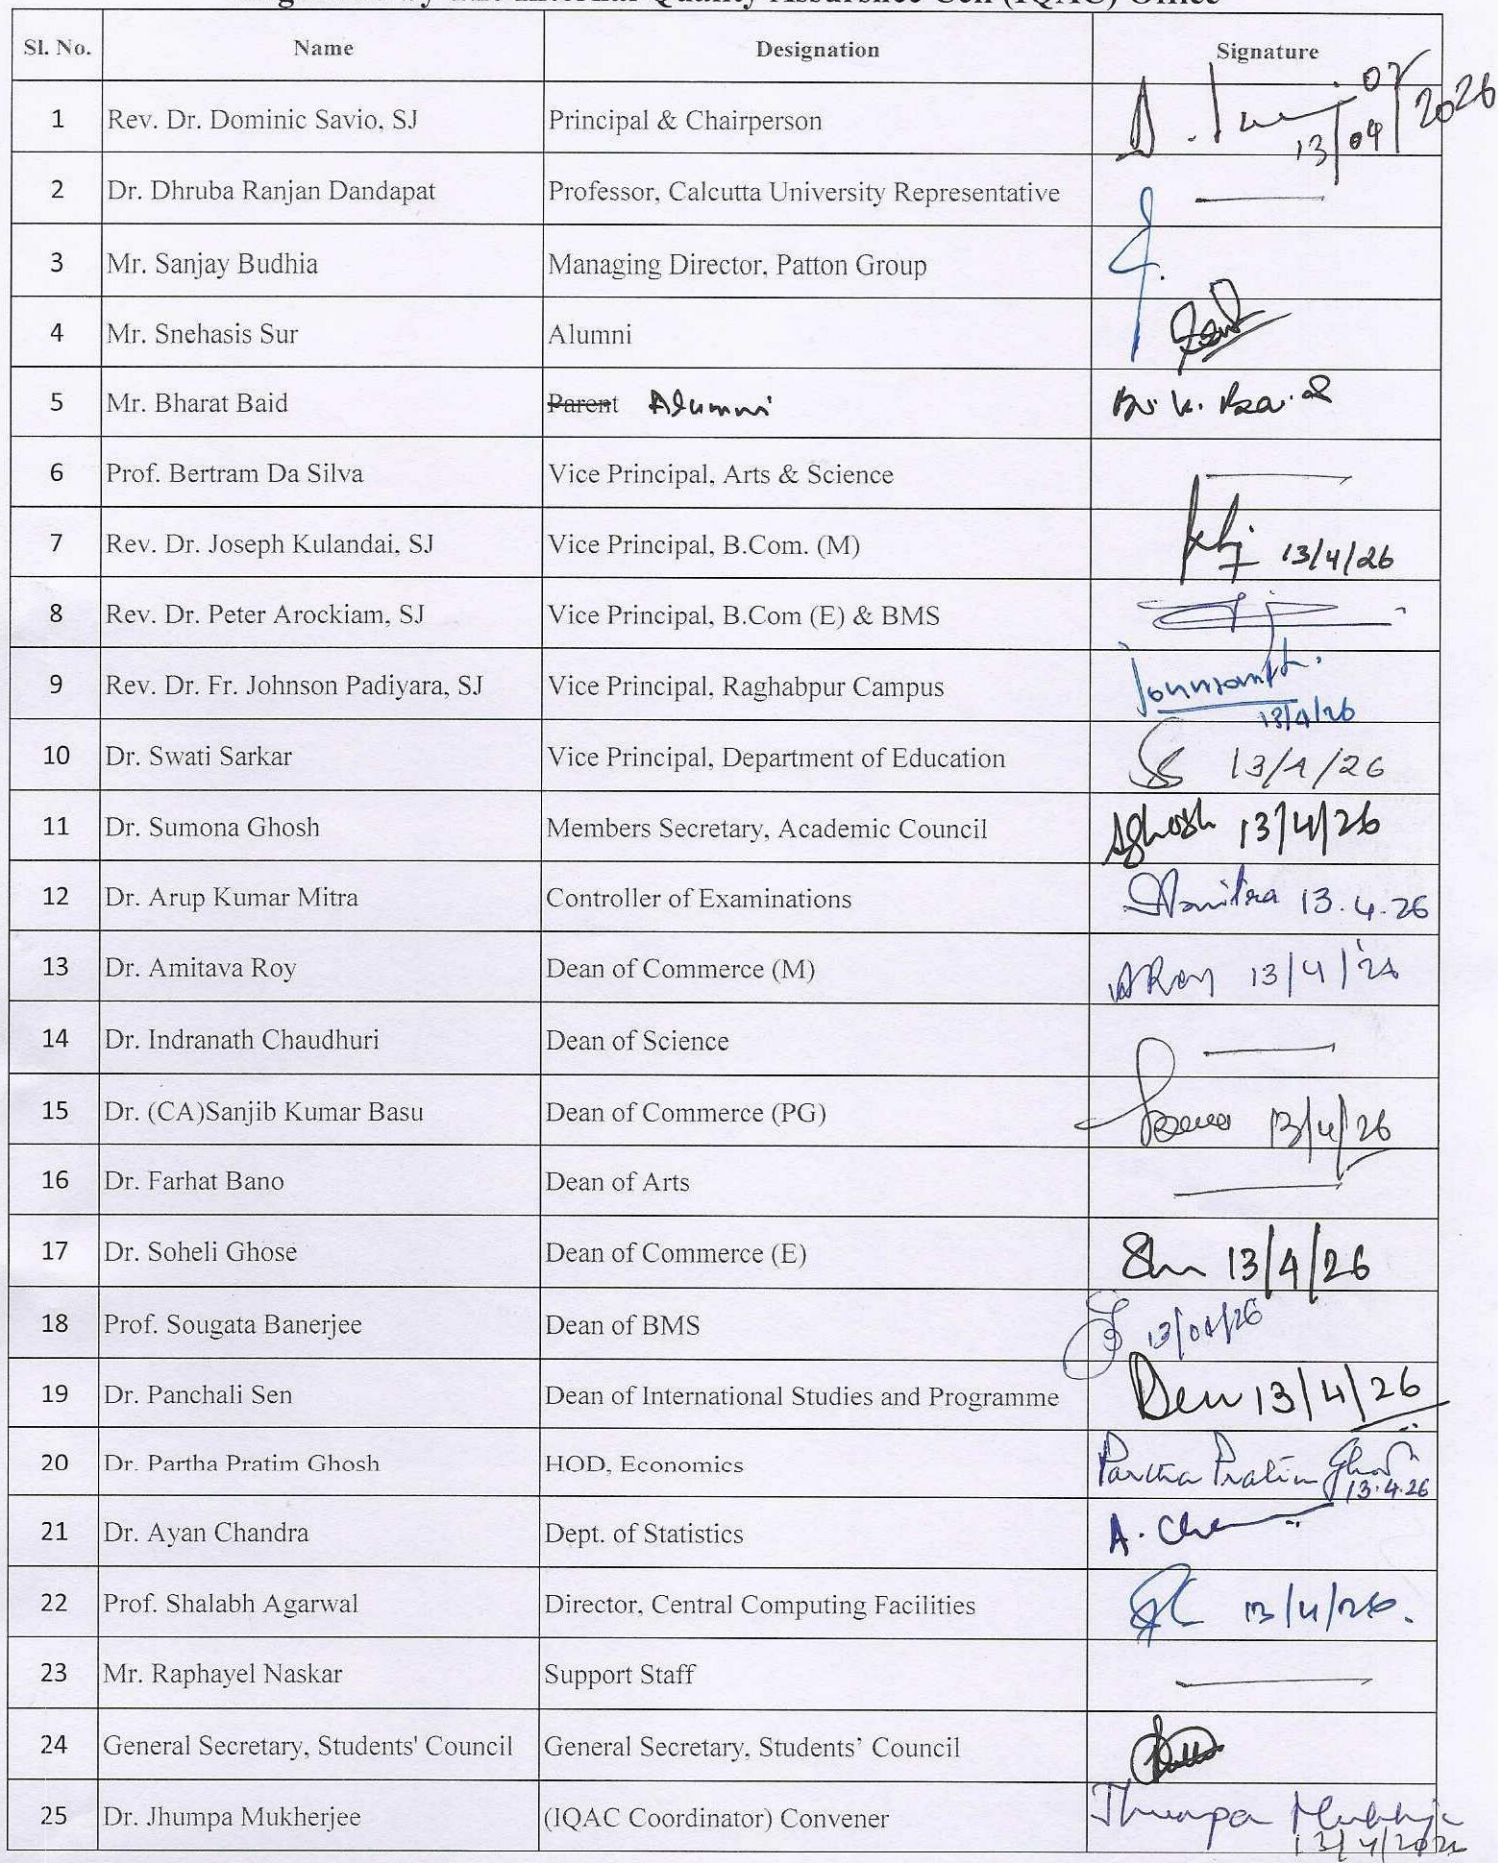 Internal Quality Assurance Cell (IQAC) Office
Sl. No. Name Designation Signature
1 Rev. Dr. Dominic Savio, SJ Principal & Chairperson 13/04/2026
2 Dr. Dhruba Ranjan Dandapat Professor, Calcutta University Representative
3 Mr. Sanjay Budhia Managing Director, Patton Group
4 Mr. Snehasis Sur Alumni
5 Mr. Bharat Baid Parent Alumni
6 Prof. Bertram Da Silva Vice Principal, Arts & Science
7 Rev. Dr. Joseph Kulandai, SJ Vice Principal, B.Com. (M) 13/4/26
8 Rev. Dr. Peter Arockiam, SJ Vice Principal, B.Com (E) & BMS
9 Rev. Dr. Fr. Johnson Padiyara, SJ Vice Principal, Raghabpur Campus 13/4/26
10 Dr. Swati Sarkar Vice Principal, Department of Education SS 13/4/26
11 Dr. Sumona Ghosh Members Secretary, Academic Council SGhosh 13/4/26
12 Dr. Arup Kumar Mitra Controller of Examinations 13.4.26
13 Dr. Amitava Roy Dean of Commerce (M) ARoy 13/4/26
14 Dr. Indranath Chaudhuri Dean of Science
15 Dr. (CA)Sanjib Kumar Basu Dean of Commerce (PG) 13/4/26
16 Dr. Farhat Bano Dean of Arts
17 Dr. Soheli Ghose Dean of Commerce (E) 13/4/26
18 Prof. Sougata Banerjee Dean of BMS 13/04/26
19 Dr. Panchali Sen Dean of International Studies and Programme 13/4/26
20 Dr. Partha Pratim Ghosh HOD, Economics Partha Pratim Ghosh 13.4.26
21 Dr. Ayan Chandra Dept. of Statistics
22 Prof. Shalabh Agarwal Director, Central Computing Facilities 13/4/26.
23 Mr. Raphayel Naskar Support Staff
24 General Secretary, Students' Council General Secretary, Students’ Council
25 Dr. Jhumpa Mukherjee (IQAC Coordinator) Convener Jhumpa Mukherjee 13/4/2026